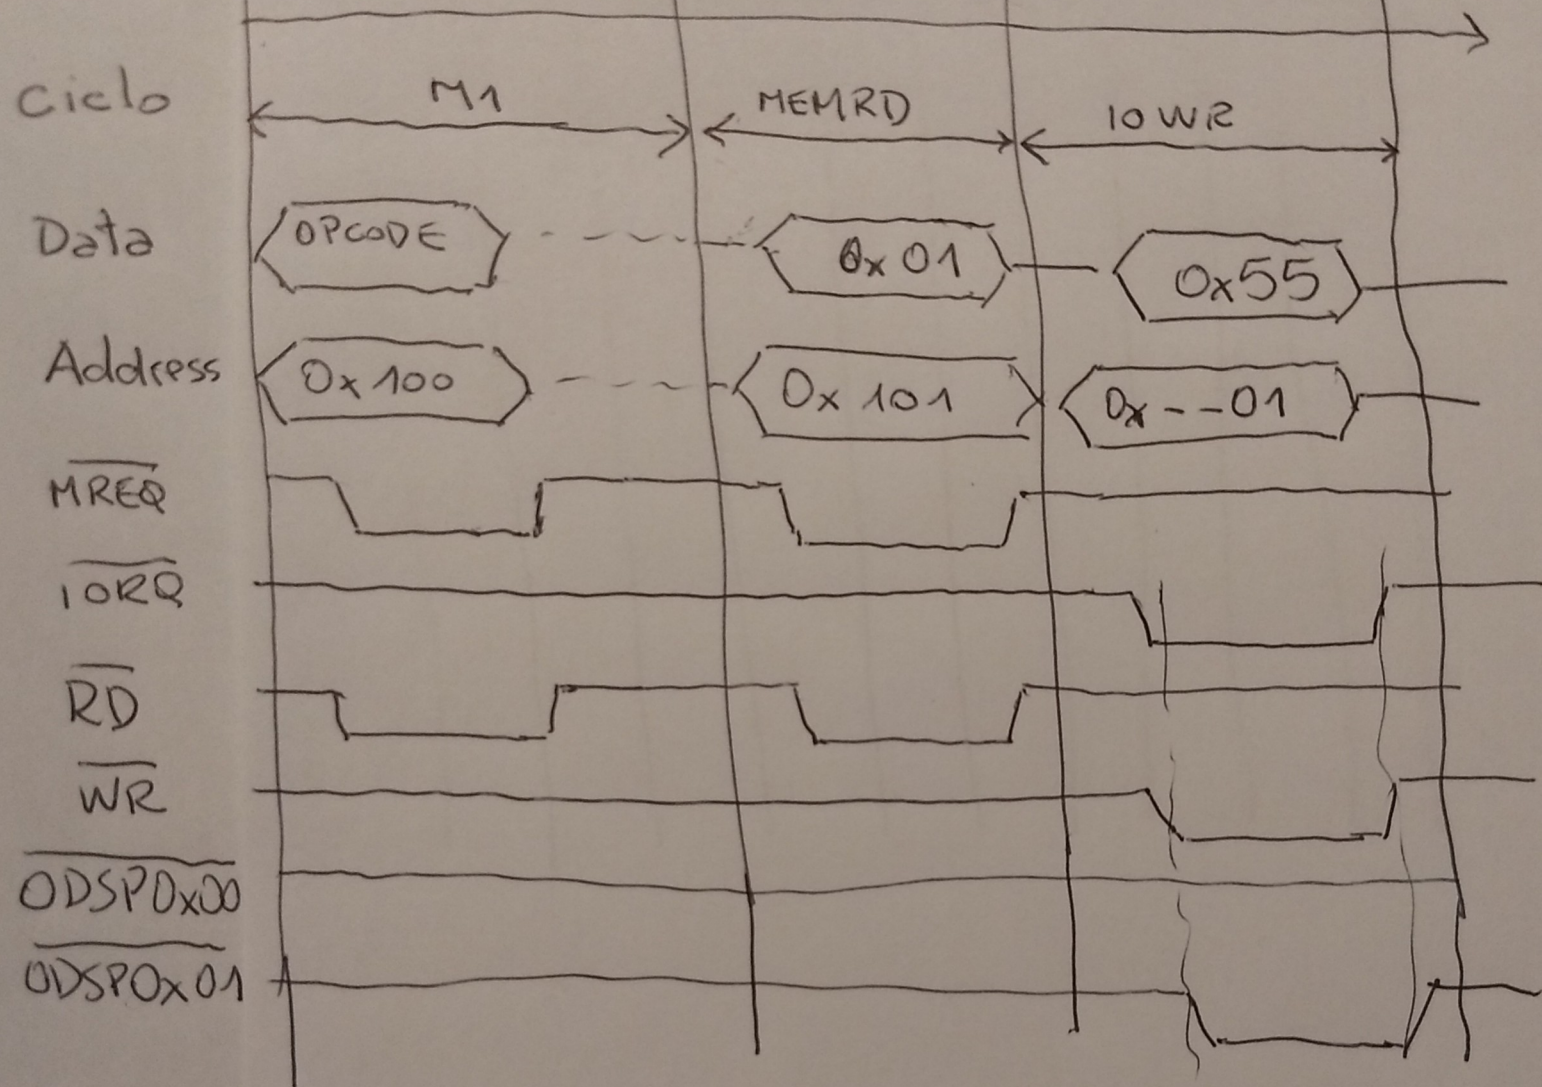 Ciclo M1 MEMRD IOWR
Data OPCODE 0x01 0x55
Address 0x100 0x101 0x--01
MREQ
IORQ
RD
WR
ODSP0x00
ODSP0x01